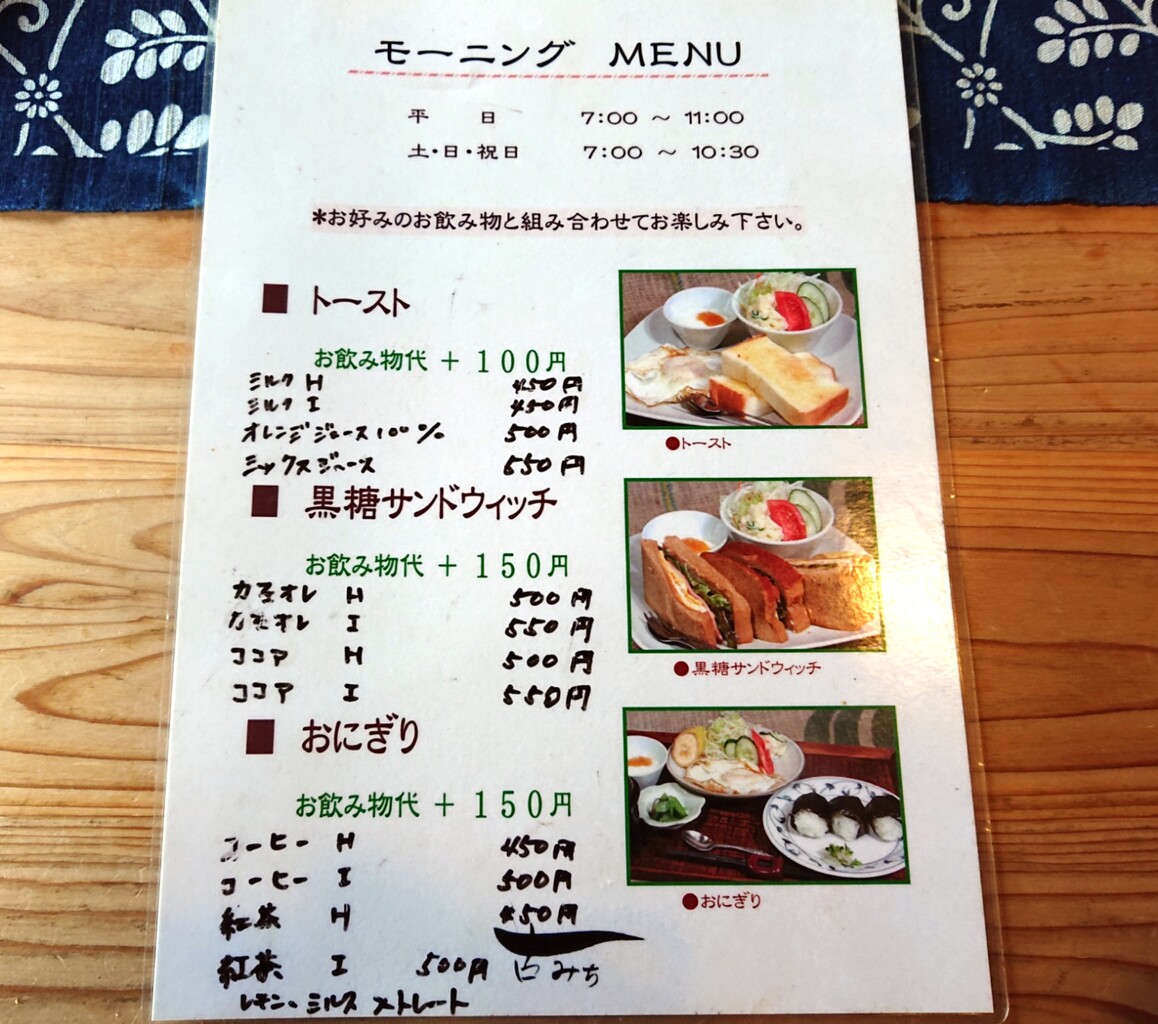 モーニング MENU
平 日 7:00 ～ 11:00
土・日・祝日 7:00 ～ 10:30
*お好みのお飲み物と組み合わせてお楽しみ下さい。
■ トースト
お飲み物代 + 100円
ミルク H 450円
ミルク I 450円
オレンジジュース100% 500円
ミックスジュース 550円
●トースト
■ 黒糖サンドウィッチ
お飲み物代 + 150円
カフェオレ H 500円
カフェオレ I 550円
ココア H 500円
ココア I 550円
●黒糖サンドウィッチ
■ おにぎり
お飲み物代 + 150円
コーヒー H 450円
コーヒー I 500円
紅茶 H 450円
紅茶 I 500円
レモン、ミルク ストレート
●おにぎり